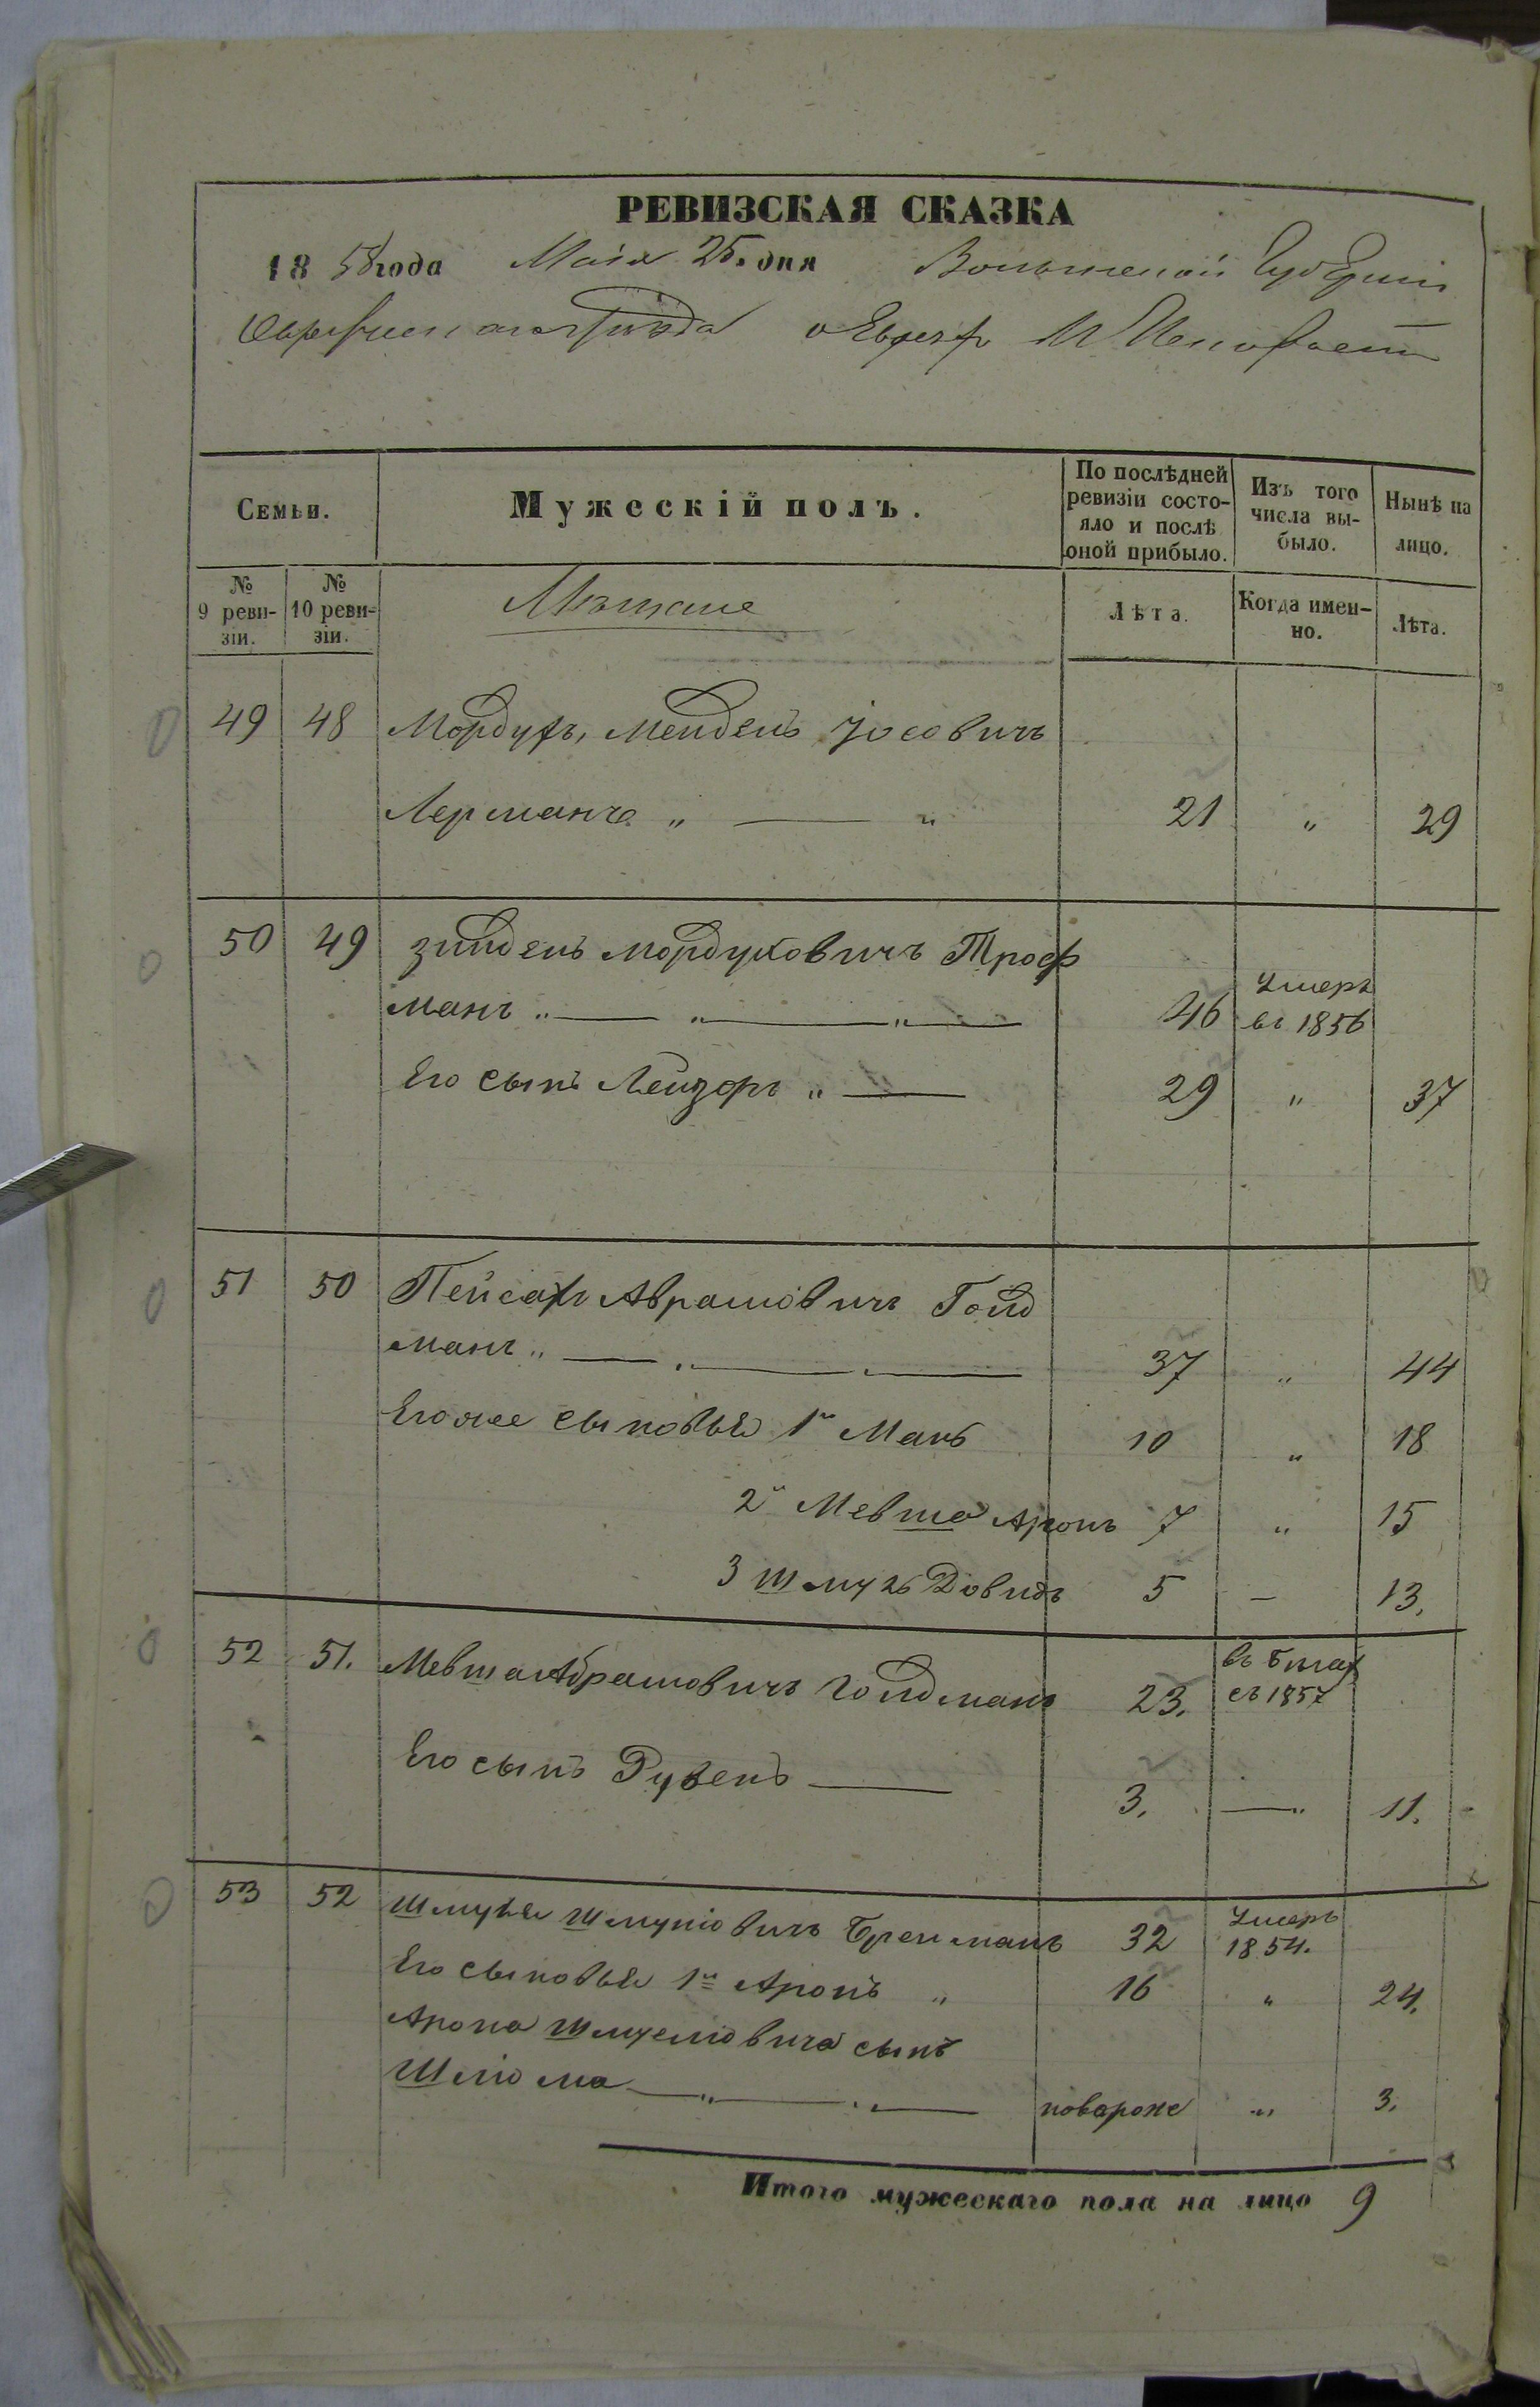 РЕВИЗСКАЯ СКАЗКА
1858 года Маія 25. дня Волынской Губерніи
уѣзда о Евреяхъ М.
Семьи. Мужескій полъ. По послѣдней ревизіи состояло и послѣ оной прибыло. Изъ того числа выбыло. Нынѣ на лицо.
№ 9 ревизіи. № 10 ревизіи. Мѣщане Лѣта. Когда именно. Лѣта.
49 48 Мордухъ, Мендель Іосовичъ
Лерманъ „ — „ 21 „ 29
50 49 Зиндель Мордуховичъ Троф
манъ „ — „ — „ — 46 Умеръ въ 1856
Его сынъ Лейзоръ „ — 29 „ 37
51 50 Пейсахъ Аврамовичъ Голд
манъ „ — „ — 37 „ 44
Его же сыновья 1й Манъ 10 „ 18
2й Мевша Аронъ 7 „ 15
3 Шмуль Довидъ 5 — 13.
52 51. Мевша Абрамовичъ Голдманъ 23. въ бѣгах съ 1857
Его сынъ Рувенъ — 3. — „ 11.
53 52 Шмуль Шмуліовичъ Бренманъ 32 Умеръ 1854.
Его сыновья 1й Аронъ „ 16 „ 24.
Арона Шмуеліовича сынъ
Шліома — „ — „ — новорож „ 3.
Итого мужескаго пола на лицо 9